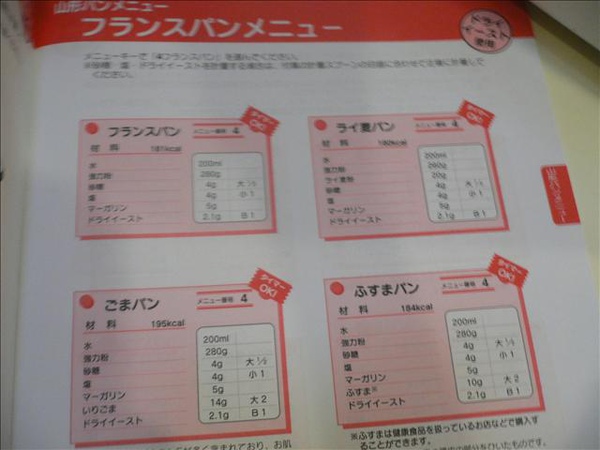 山形パンメニュー
フランスパンメニュー
ドライイースト使用
メニューキーで「4フランスパン」を選んでください。
※砂糖・塩・ドライイーストを計量する場合は、付属の計量スプーンの印線に合わせて正確に計量して
ください。
タイマーOK!
フランスパン メニュー番号 4
材料 181kcal
水 200ml
強力粉 280g
砂糖 4g 大1/2
塩 4g 小1
マーガリン 5g
ドライイースト 2.1g B1
タイマーOK!
ライ麦パン メニュー番号 4
材料 180kcal
水 200ml
強力粉 260g
ライ麦粉 20g
砂糖 4g 大1/2
塩 4g 小1
マーガリン 5g
ドライイースト 2.1g B1
山形パンメニュー
タイマーOK!
ごまパン メニュー番号 4
材料 195kcal
水 200ml
強力粉 280g
砂糖 4g 大1/2
塩 4g 小1
マーガリン 5g
いりごま 14g 大2
ドライイースト 2.1g B1
タイマーOK!
ふすまパン メニュー番号 4
材料 184kcal
水 200ml
強力粉 280g
砂糖 4g 大1/2
塩 4g 小1
マーガリン 5g
ふすま※ 10g 大2
ドライイースト 2.1g B1
※ふすまは健康食品を扱っているお店などで購入す
ることができます。